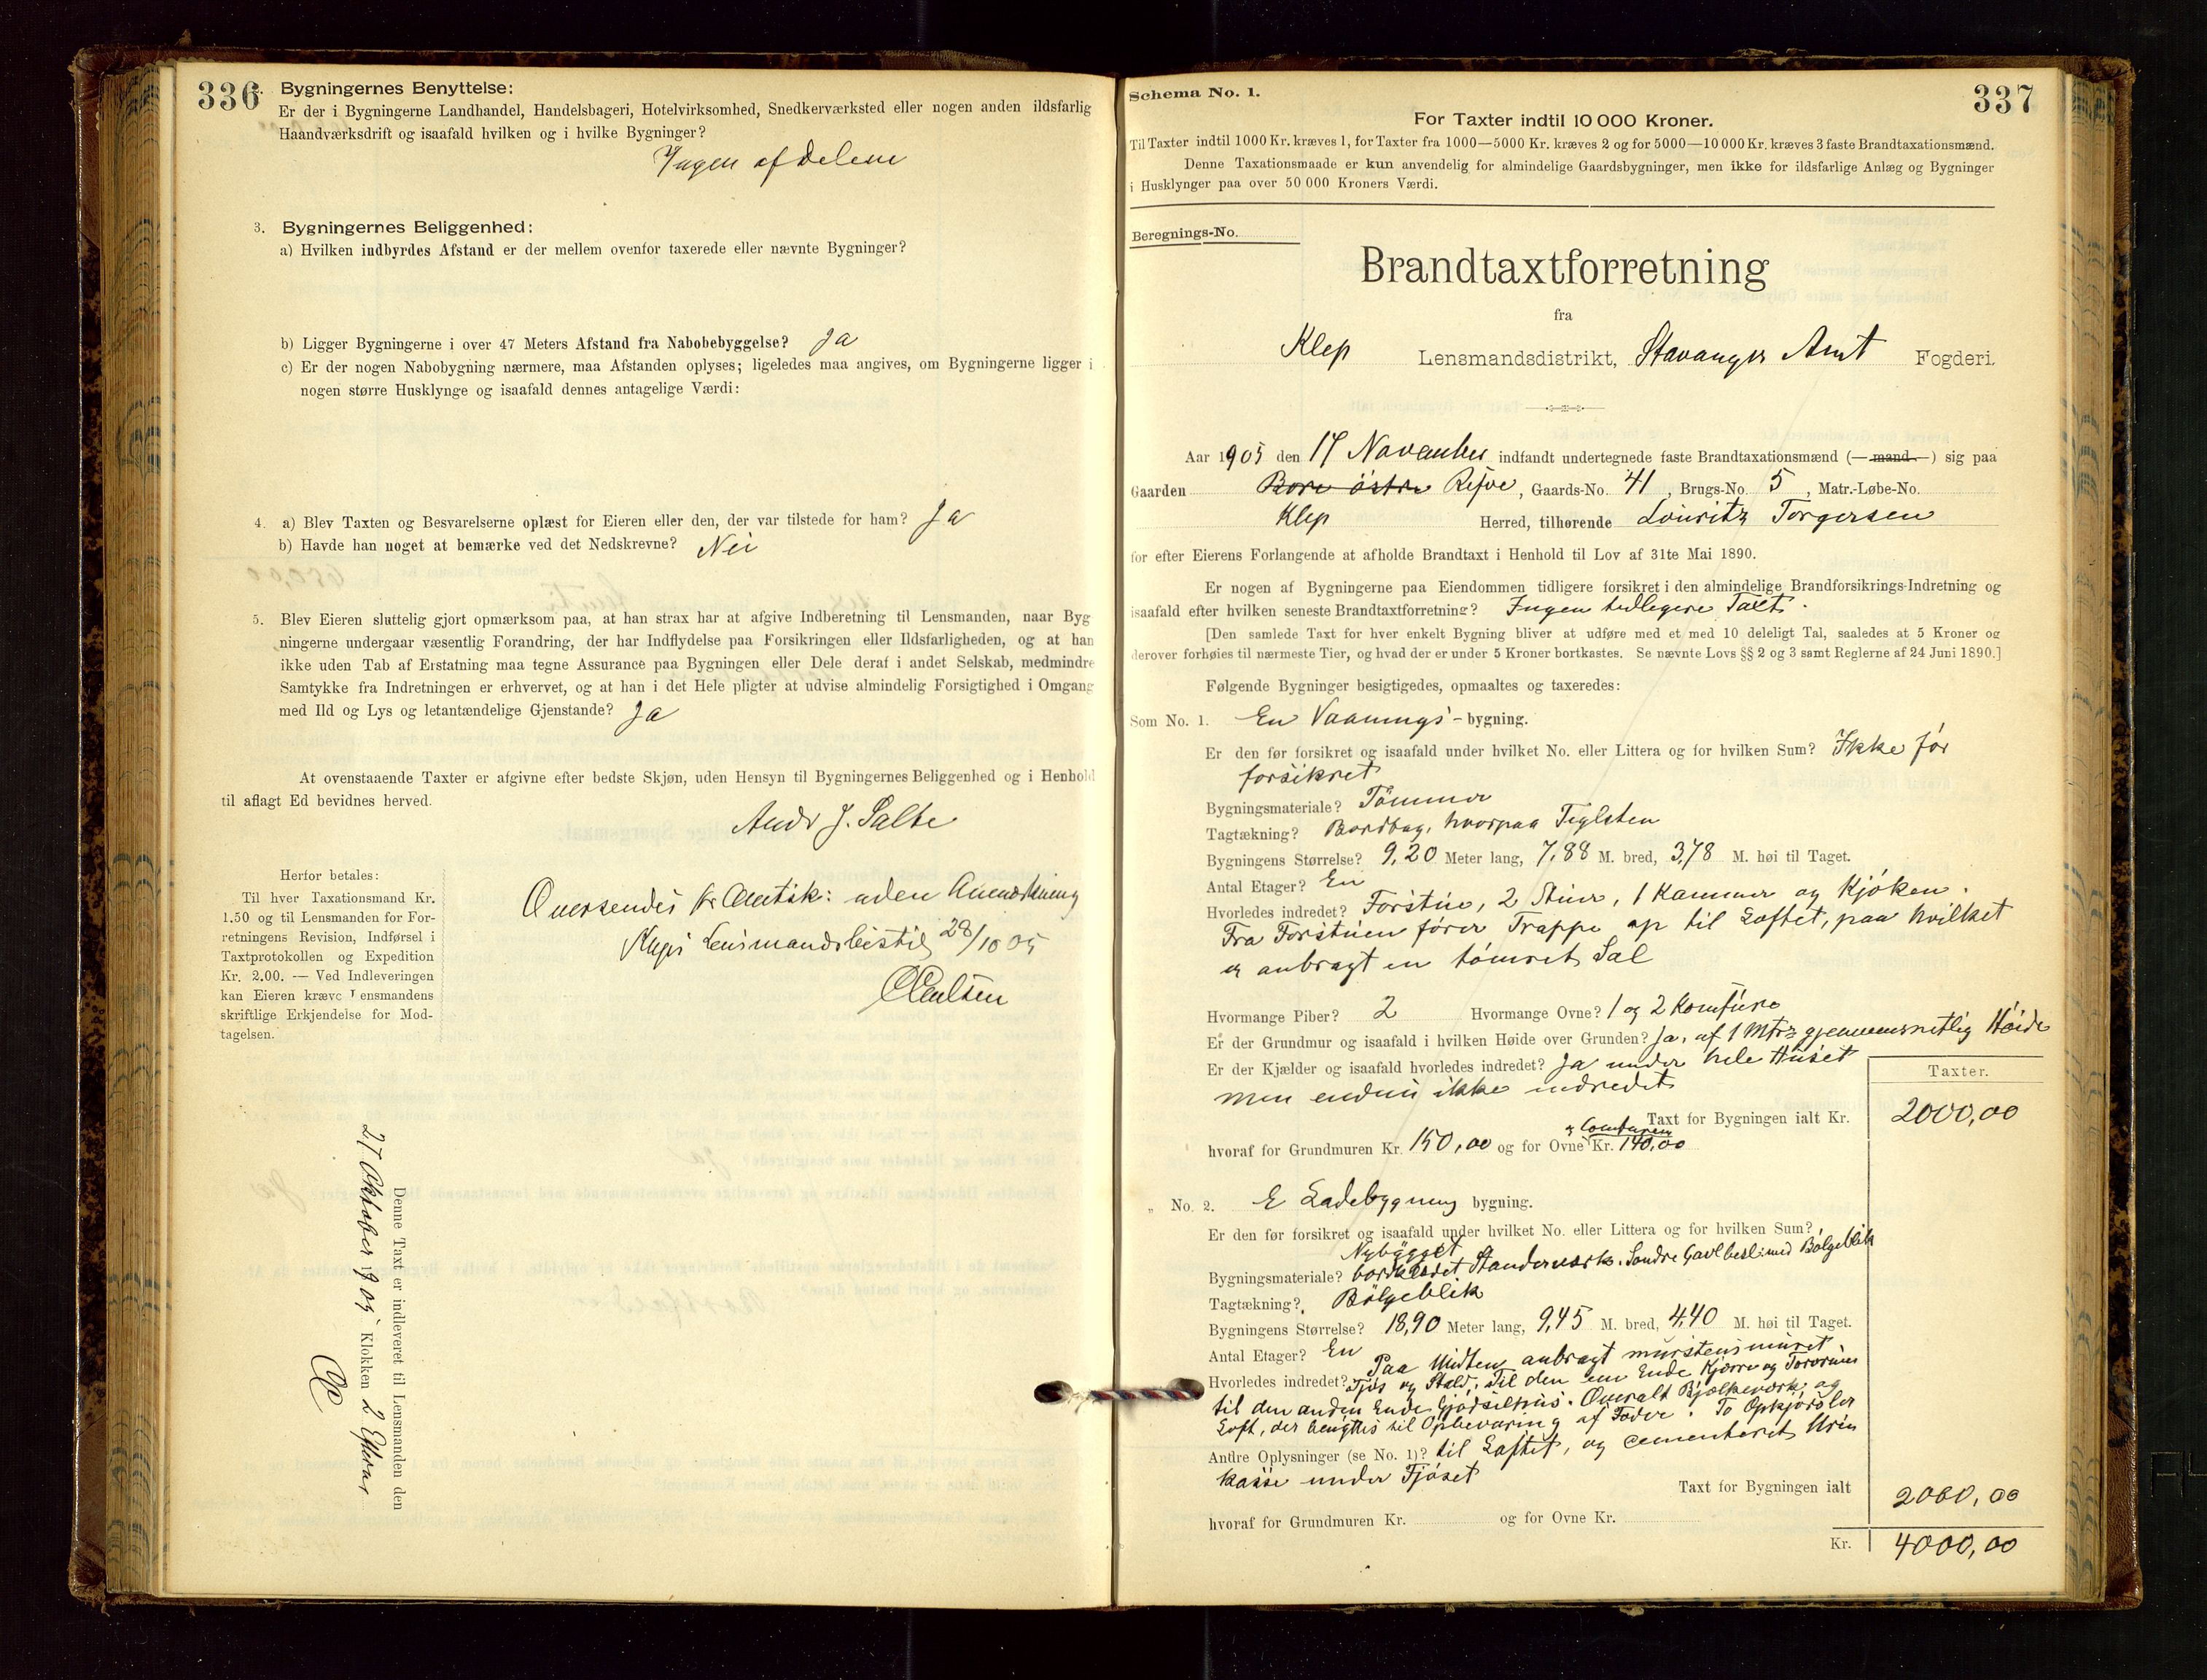 336
2. Bygningernes Benyttelse:
Er der i Bygningerne Landhandel, Handelsbageri, Hotelvirksomhed, Snedkerværksted eller nogen anden ildsfarlig
Haandværksdrift og isaafald hvilken og i hvilke Bygninger?
Ingen af delene
3. Bygningernes Beliggenhed:
a) Hvilken indbyrdes Afstand er der mellem ovenfor taxerede eller nævnte Bygninger?
b) Ligger Bygningerne i over 47 Meters Afstand fra Nabobebyggelse? Ja
c) Er der nogen Nabobygning nærmere, maa Afstanden oplyses; ligeledes maa angives, om Bygningerne ligger i
nogen større Husklynge og isaafald dennes antagelige Værdi:
4. a) Blev Taxten og Besvarelserne oplæst for Eieren eller den, der var tilstede for ham? Ja
b) Havde han noget at bemærke ved det Nedskrevne? Nei
5. Blev Eieren sluttelig gjort opmærksom paa, at han strax har at afgive Indberetning til Lensmanden, naar Byg-
ningerne undergaar væsentlig Forandring, der har Indflydelse paa Forsikringen eller Ildsfarligheden, og at han
ikke uden Tab af Erstatning maa tegne Assurance paa Bygningen eller Dele deraf i andet Selskab, medmindre
Samtykke fra Indretningen er erhvervet, og at han i det Hele pligter at udvise almindelig Forsigtighed i Omgang
med Ild og Lys og letantændelige Gjenstande? Ja
At ovenstaaende Taxter er afgivne efter bedste Skjøn, uden Hensyn til Bygningernes Beliggenhed og i Henhold
til aflagt Ed bevidnes herved.
Andr J. Salte
Herfor betales:
Til hver Taxationsmand Kr.
1.50 og til Lensmanden for For-
retningens Revision, Indførsel i
Taxtprotokollen og Expedition
Kr. 2.00. — Ved Indleveringen
kan Eieren kræve Lensmandens
skriftlige Erkjendelse for Mod-
tagelsen.
Oversendes Hr. Amtsk: uden Anmærkning
Kleps Lensmandsbestil 28/10 05
Denne Taxt er indleveret til Lensmanden den
27 Oktober 1905 Klokken 2 Efterm
Schema No. 1.
337
For Taxter indtil 10 000 Kroner.
Til Taxter indtil 1000 Kr. kræves 1, for Taxter fra 1000—5000 Kr. kræves 2 og for 5000—10 000 Kr. kræves 3 faste Brandtaxationsmænd.
Denne Taxationsmaade er kun anvendelig for almindelige Gaardsbygninger, men ikke for ildsfarlige Anlæg og Bygninger
i Husklynger paa over 50 000 Kroners Værdi.
Beregnings-No.
Brandtaxtforretning
fra
Klep Lensmandsdistrikt, Stavanger Amt Fogderi.
Aar 1905 den 17 November indfandt undertegnede faste Brandtaxationsmænd (— mand —) sig paa
Gaarden Bore östre Refve, Gaards-No. 41, Brugs-No. 5, Matr.-Løbe-No.
Klep Herred, tilhørende Louritz Torgersen
for efter Eierens Forlangende at afholde Brandtaxt i Henhold til Lov af 31te Mai 1890.
Er nogen af Bygningerne paa Eiendommen tidligere forsikret i den almindelige Brandforsikrings-Indretning og
isaafald efter hvilken seneste Brandtaxtforretning? Ingen tidligere Taxt.
[Den samlede Taxt for hver enkelt Bygning bliver at udføre med et med 10 deleligt Tal, saaledes at 5 Kroner og
derover forhøies til nærmeste Tier, og hvad der er under 5 Kroner bortkastes. Se nævnte Lovs §§ 2 og 3 samt Reglerne af 24 Juni 1890.]
Følgende Bygninger besigtigedes, opmaaltes og taxeredes:
Som No. 1. En Vaanings-bygning.
Er den før forsikret og isaafald under hvilket No. eller Littera og for hvilken Sum? Ikke før
forsikret
Bygningsmateriale? Tömmer
Tagtækning? Bordtag, hvorpaa Teglsten
Bygningens Størrelse? 9,20 Meter lang, 7,88 M. bred, 3,78 M. høi til Taget.
Antal Etager? En
Hvorledes indredet? Forstue, 2 Stuer, 1 Kammer og Kjöken.
Fra Forstuen förer Trappe op til Loftet, paa hvilket
er anbragt en tömret Sal
Hvormange Piber? 2 Hvormange Ovne? 1 og 2 Komfure
Er der Grundmur og isaafald i hvilken Høide over Grunden? Ja, af 1 Mtrs gjennemsnitlig Höide
Er der Kjælder og isaafald hvorledes indredet? Ja under hele Huset
men endnu ikke indredet
Taxter.
Taxt for Bygningen ialt Kr. 2000,00
hvoraf for Grundmuren Kr. 150,00 og for Ovne og Comfuren Kr. 140,00
„ No. 2. E Ladebygning bygning.
Er den før forsikret og isaafald under hvilket No. eller Littera og for hvilken Sum?
Nybygget
Bygningsmateriale? bordklædt Standerværk. Söndre Gavl besl: med Bölgeblik
Tagtækning? Bölgeblik
Bygningens Størrelse? 18,90 Meter lang, 9,45 M. bred, 4,40 M. høi til Taget.
Antal Etager? En
Paa Midten anbragt murstensmuret
Hvorledes indredet? Fjös og Stald. Til den ene Ende Kjørre og Torvrum
til den anden Ende Gjödselhus. Overalt Bjælkeværk og
Loft, der benyttes til Opbevaring af Foder. To Opkjörsler
Andre Oplysninger (se No. 1)? til Loftet, og cementeret Urin
kasse under Fjöset
Taxt for Bygningen ialt 2000,00
hvoraf for Grundmuren Kr. og for Ovne Kr.
Kr. 4000,00